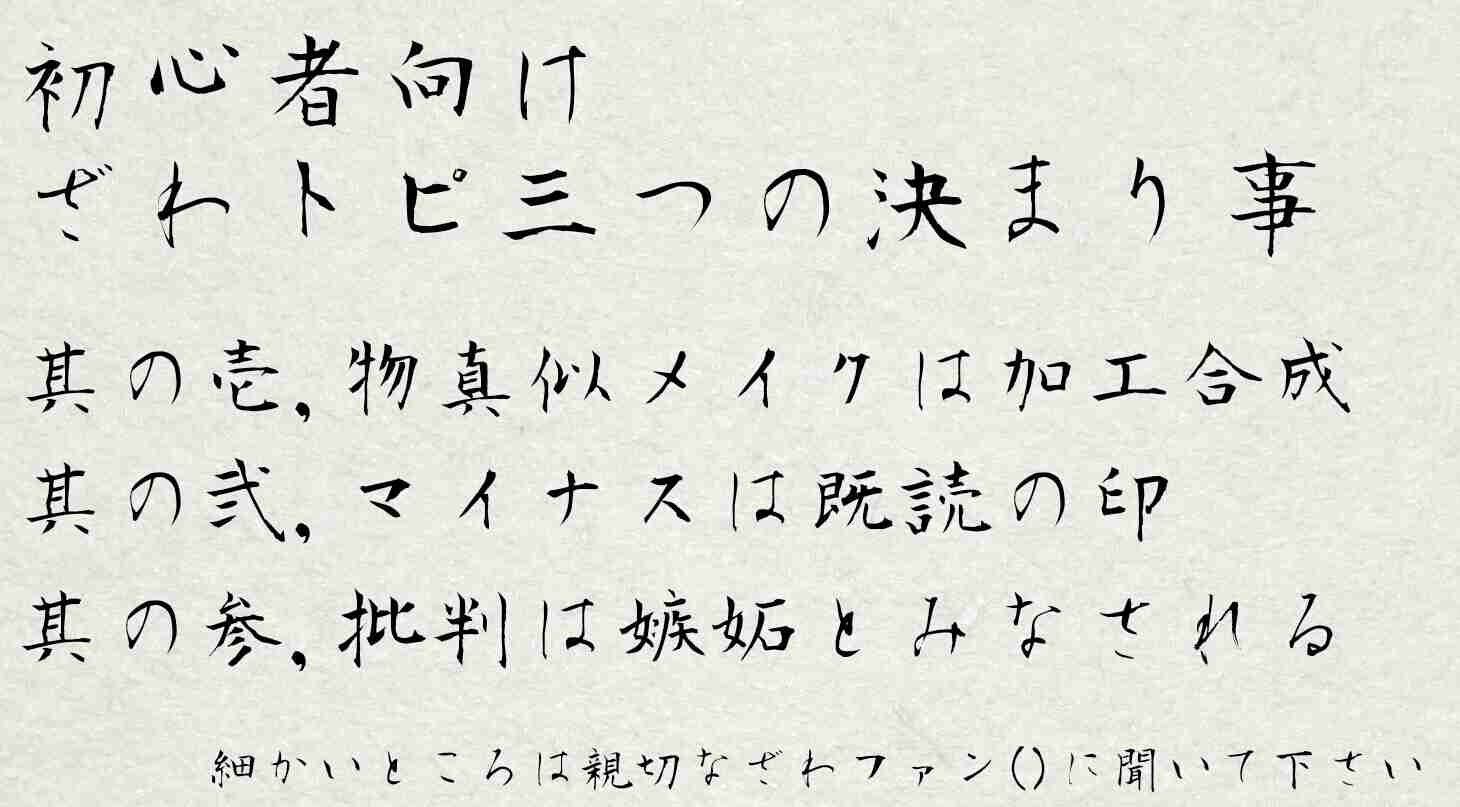 初心者向け
ざわトピ三つの決まり事
其の壱,物真似メイクは加工合成
其の弐,マイナスは既読の印
其の参,批判は嫉妬とみなされる
細かいところは親切なざわファン()に聞いて下さい